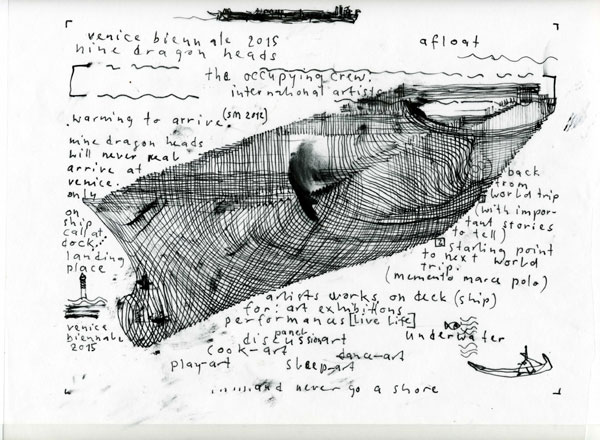 venice biennale 2015
nine dragon heads
afloat
the occupying crew:
international artists
warning to arrive. (SM 2012)
nine dragon heads
will never real
arrive at
venice.
only
on
ship
call at
dock.
landing
place
venice
biennale
2015
back
from
world trip
(with impor-
tant stories
to tell)
starting point
to next world
trip.
(memento marco polo)
artists works on deck (ship)
for: art exhibitions
performances [live life]
panel
discussionart
underwater
cook-art
dance-art
play-art
sleep-art
and never go a shore